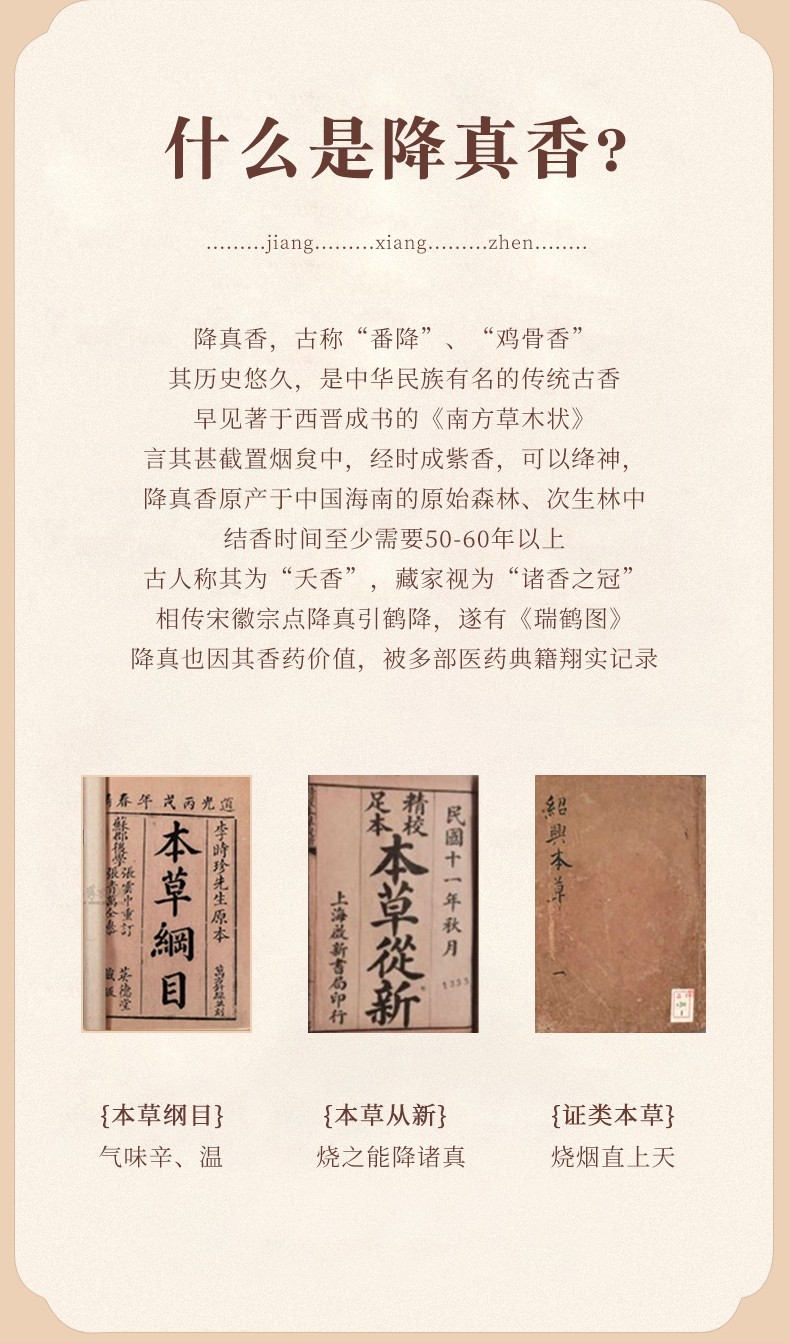 什么是降真香?
.........jiang.........xiang.........zhen........
降真香，古称“番降”、“鸡骨香”
其历史悠久，是中华民族有名的传统古香
早见著于西晋成书的《南方草木状》
言其甚截置烟炱中，经时成紫香，可以绛神，
降真香原产于中国海南的原始森林、次生林中
结香时间至少需要50-60年以上
古人称其为“夭香”，藏家视为“诸香之冠”
相传宋徽宗点降真引鹤降，遂有《瑞鹤图》
降真也因其香药价值，被多部医药典籍翔实记录
春午戌丙光道
李時珍先生原本
本草綱目
張雲中重訂
英德堂
民國十一年秋月
1333
精校
足本
本草從新
上海啟新書局印行
紹興本草
一
{本草纲目}
气味辛、温
{本草从新}
烧之能降诸真
{证类本草}
烧烟直上天